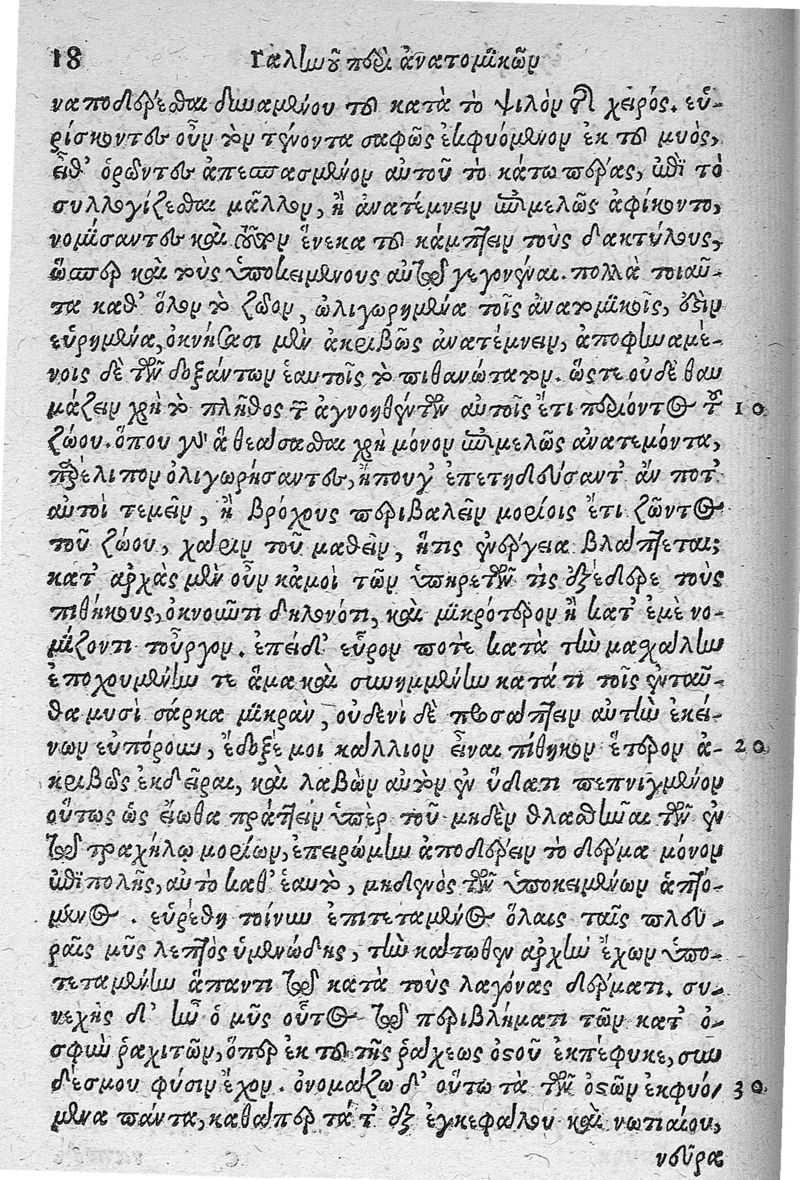 18 Γαληνοῦ περὶ ἀνατομικῶν
ναποδέρεσθαι δυναμένου τοῦ κατὰ τὸ ψιλὸν τῆς χειρός. εὑ-
ρίσκοντες οὖν τὸν τένοντα σαφῶς ἐκφυόμενον ἐκ τοῦ μυὸς,
εἶθ' ὁρῶντες ἀπεσπασμένον αὐτοῦ τὸ κάτω πέρας, ἐπὶ τὸ
συλλογίζεσθαι μᾶλλον, ἢ ἀνατέμνειν ἐπιμελῶς ἀφίκοντο,
νομίσαντες καὶ τοῦτον ἕνεκα τοῦ κάμπτειν τοὺς δακτύλους,
ὥσπερ καὶ τοὺς ὑποκειμένους αὐτῷ γεγονέναι. πολλὰ τοιαῦ-
τα καθ' ὅλον τὸ ζῶον, ὠλιγωρημένα τοῖς ἀνατομικοῖς, ἐστὶν
εὑρημένα, ὀκνήσασι μὲν ἀκριβῶς ἀνατέμνειν, ἀποφηναμέ-
νοις δὲ τῶν δοξάντων ἑαυτοῖς τὸ πιθανώτατον. ὥστε οὐδὲ θαυ
μάζειν χρὴ τὸ πλῆθος τῶν ἀγνοηθέντων αὐτοῖς ἔτι περιόντος τοῦ 10
ζώου. ὅπου γὰρ ἃ θεάσασθαι χρὴ μόνον ἐπιμελῶς ἀνατεμόντα,
παρέλιπον ὀλιγωρήσαντες, ἤπουγ' ἐπετηδεύσαντ' ἄν ποτ'
αὐτοὶ τεμεῖν, ἢ βρόχους περιβαλεῖν μορίοις ἔτι ζῶντος
τοῦ ζώου, χάριν τοῦ μαθεῖν, ἥτις ἐνέργεια βλάπτεται;
κατ' ἀρχὰς μὲν οὖν κἀμοὶ τῶν ὑπηρετῶν τὶς ἐξέδερε τοὺς
πιθήκους, ὀκνοῦντι δηλονότι, καὶ μικρότερον ἢ κατ' ἐμὲ νο-
μίζοντι τοὖργον. ἐπεὶ δ' εὗρον ποτὲ κατὰ τὴν μασχάλην
ἐποχουμένην τε ἅμα καὶ συνημμένην κατά τι τοῖς ἐνταῦ-
θα μυσὶ σάρκα μικρὰν, οὐδενὶ δὲ προσάπτειν αὐτὴν ἐκεί-
νων εὐπόρουν, ἔδοξέ μοι κάλλιον εἶναι πίθηκον ἕτερον ἀ- 20
κριβῶς ἐκδεῖραι, καὶ λαβὼν αὐτὸν ἐν ὕδατι πεπνιγμένον
οὕτως ὡς εἴωθα πράττειν ὑπὲρ τοῦ μηδὲν θλασθῆναι τῶν ἐν
τῷ τραχήλῳ μορίων, ἐπειρώμην ἀποδέρειν τὸ δέρμα μόνον
ἐπιπολῆς, αὐτὸ καθ' ἑαυτὸ, μηδενὸς τῶν ὑποκειμένων ἁπτό-
μενος. εὑρέθη τοίνυν ἐπιτεταμένος ὅλαις ταῖς πλευ-
ραῖς μῦς λεπτὸς ὑμενώδης, τὴν κάτωθεν ἀρχὴν ἔχων ὑπο-
τεταμένην ἅπαντι τῷ κατὰ τοὺς λαγόνας δέρματι. συ-
νεχὴς δ' ἦν ὁ μῦς οὗτος τῷ περιβλήματι τῶν κατ' ὀ-
σφὺν ῥαχιτῶν, ὅπερ ἐκ τοῦ τῆς ῥάχεως ὀστοῦ ἐκπέφυκε, συν
δέσμου φύσιν ἔχον. ὀνομάζω δ' οὕτω τὰ τῶν ὀστῶν ἐκφυό- 30
μενα πάντα, καθάπερ τά τ' ἐξ ἐγκεφάλου καὶ νωτιαίου,
νεῦρα